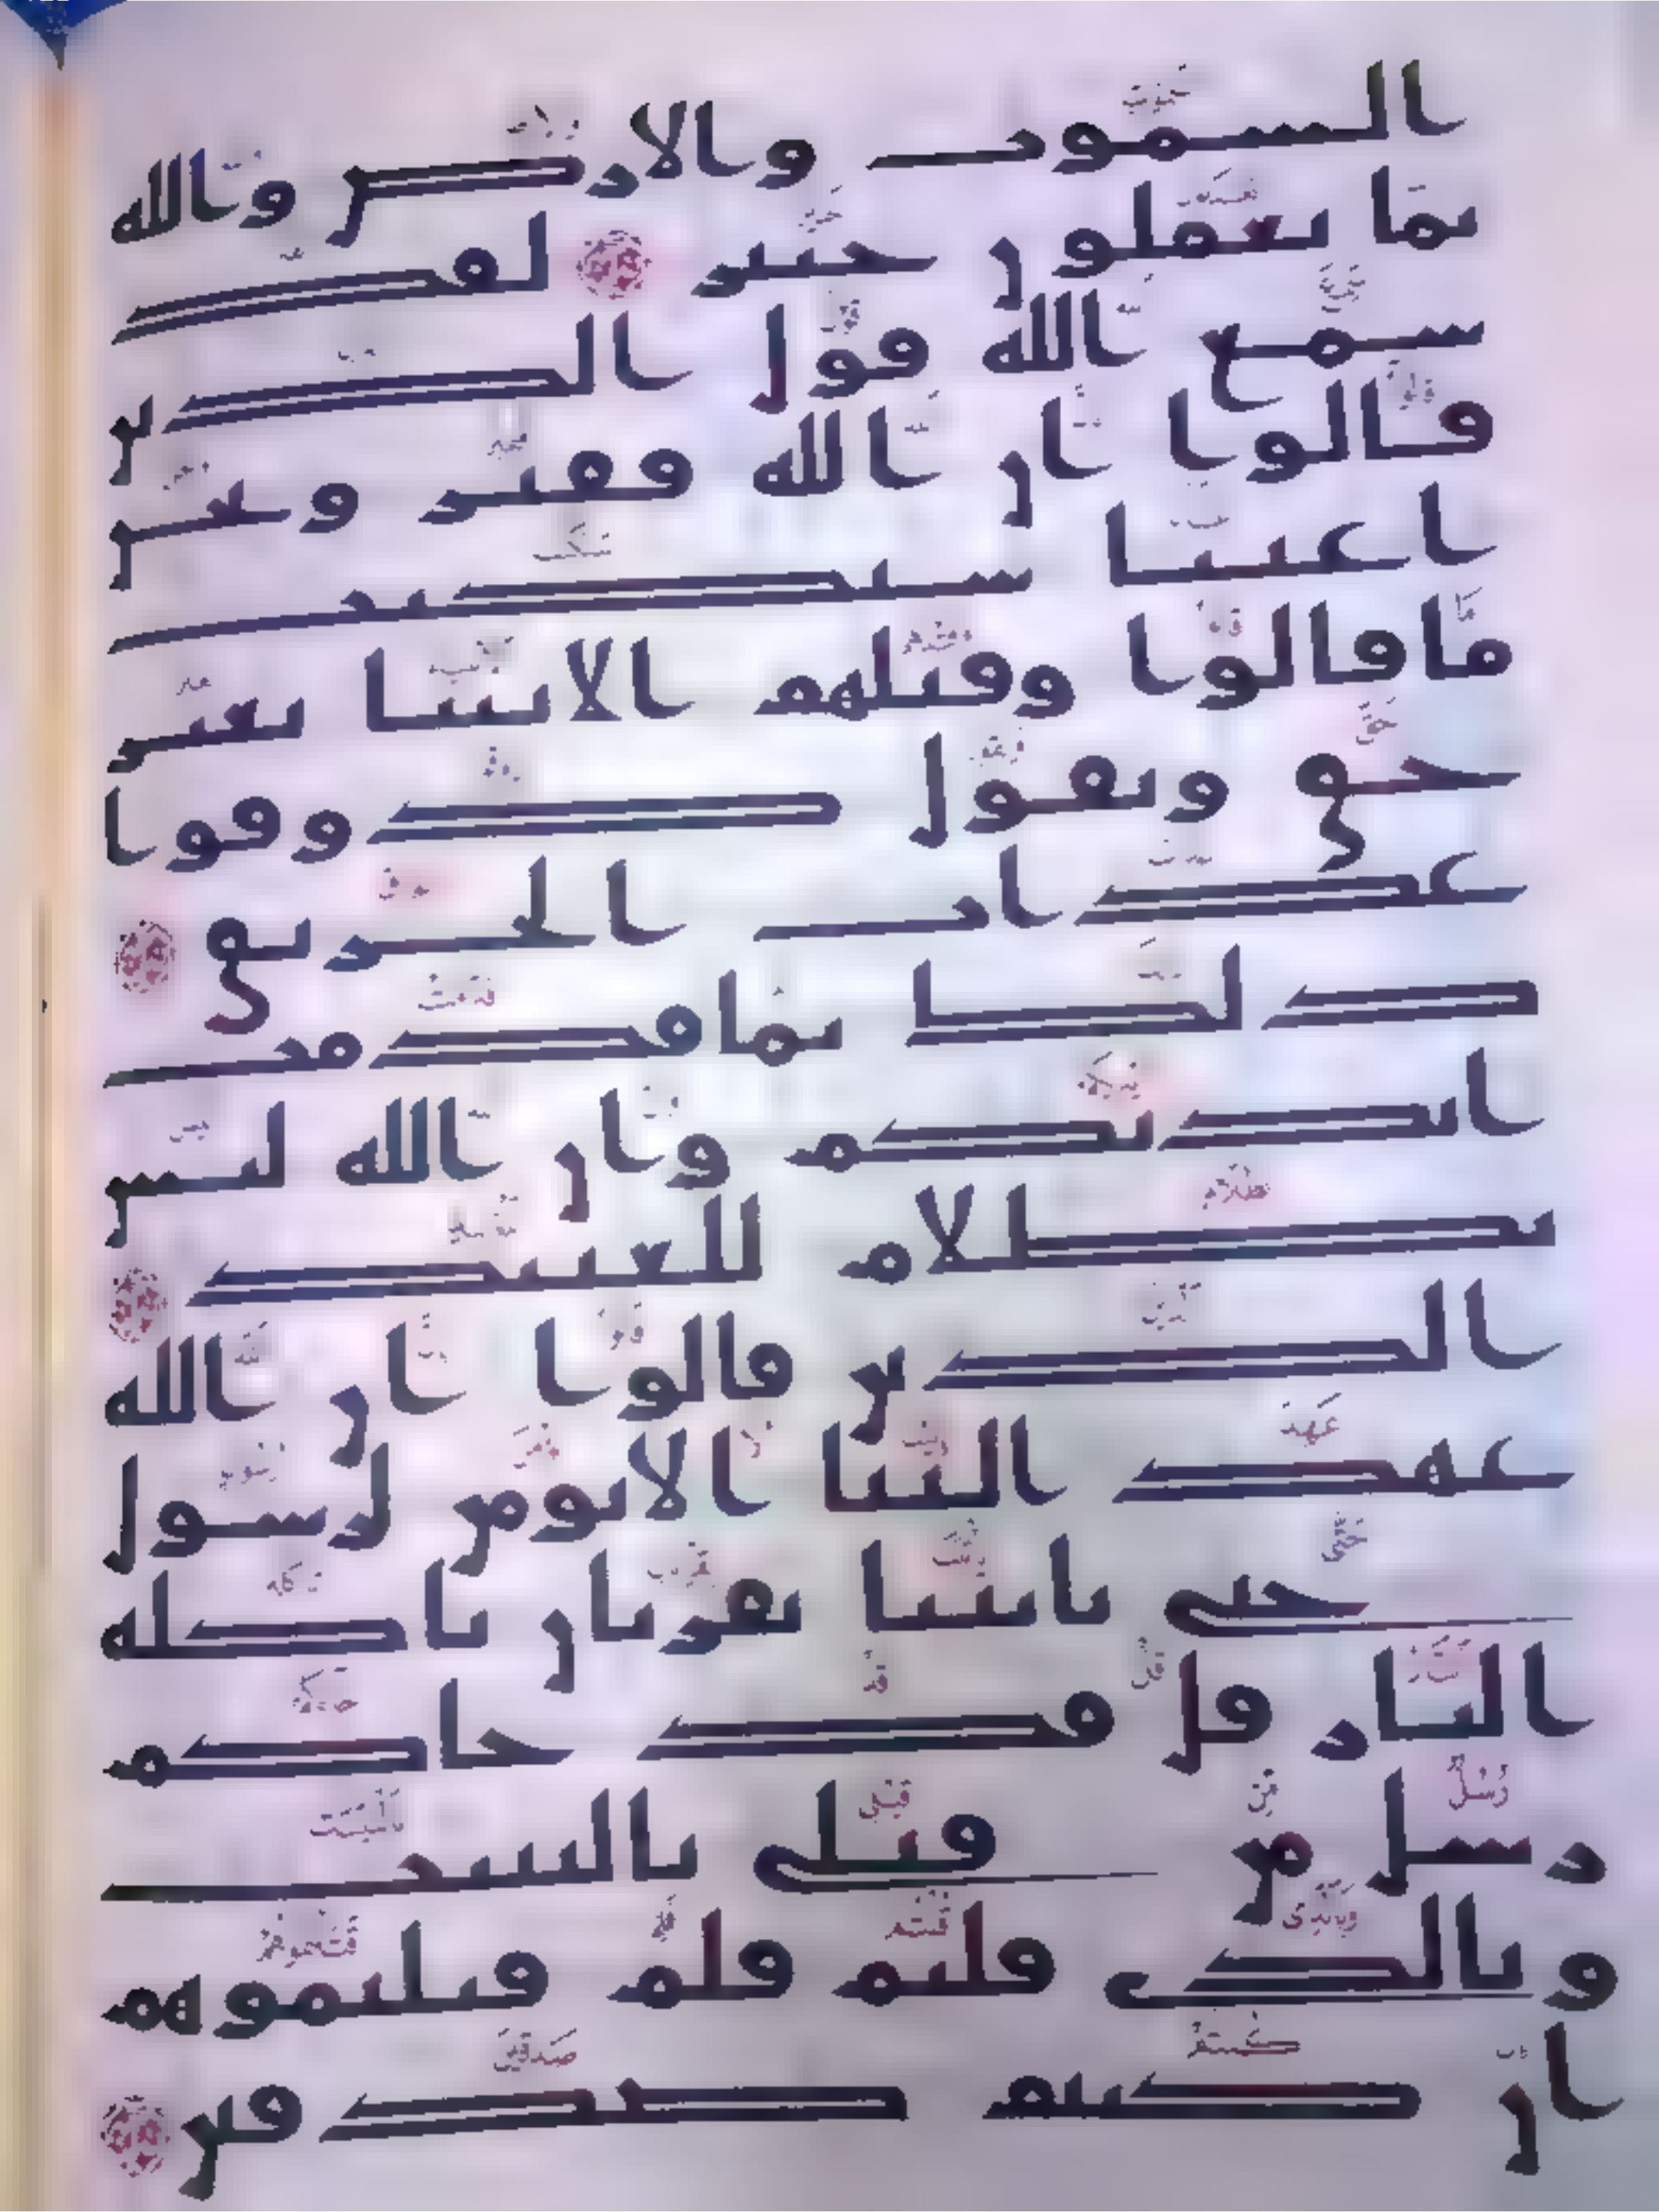 السموت والارض والله
بما تعملون خبير لقد
سمع الله قول الذين
قالوا ان الله فقير ونحن
اغنيا سنكتب
ما قالوا وقتلهم الانبيا بغير
حق ونقول ذوقوا
عذاب الحريق
ذلك بما قدمت
ايديكم وان الله ليس
بظلام للعبيد
الذين قالوا ان الله
عهد الينا الا نومن لرسول
حتى ياتينا بقربان تاكله
النار قل قد جاكم
رسل من قبلي بالبينت
وبالذي قلتم فلم قتلتموهم
ان كنتم صدقين